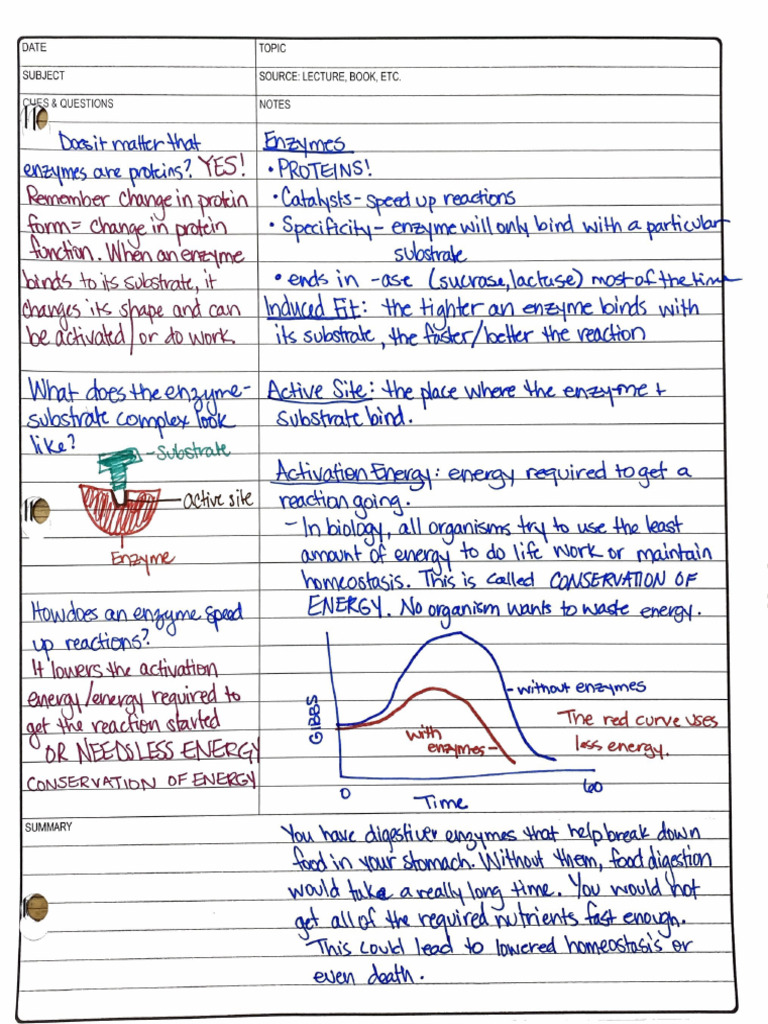 DATE
TOPIC
SUBJECT
SOURCE: LECTURE, BOOK, ETC.
CUES & QUESTIONS
NOTES
Does it matter that
enzymes are proteins? YES!
Remember change in protein
form = change in protein
function. When an enzyme
binds to its substrate, it
changes its shape and can
be activated/or do work.
What does the enzyme-
substrate complex look
like?
-Substrate
active site
Enzyme
How does an enzyme speed
up reactions?
It lowers the activation
energy/energy required to
get the reaction started
OR NEEDS LESS ENERGY
CONSERVATION OF ENERGY
Enzymes
• PROTEINS!
• Catalysts - speed up reactions
• Specificity - enzyme will only bind with a particular
substrate
• ends in -ase (sucrase, lactase) most of the time
Induced Fit: the tighter an enzyme binds with
its substrate, the faster/better the reaction
Active Site: the place where the enzyme +
substrate bind.
Activation Energy: energy required to get a
reaction going.
- In biology, all organisms try to use the least
amount of energy to do life work or maintain
homeostasis. This is called CONSERVATION OF
ENERGY. No organism wants to waste energy.
GIBBS
-without enzymes
with
enzymes-
The red curve uses
less energy.
0
60
Time
SUMMARY
You have digestiver enzymes that help break down
food in your stomach. Without them, food digestion
would take a really long time. You would not
get all of the required nutrients fast enough.
This could lead to lowered homeostasis or
even death.